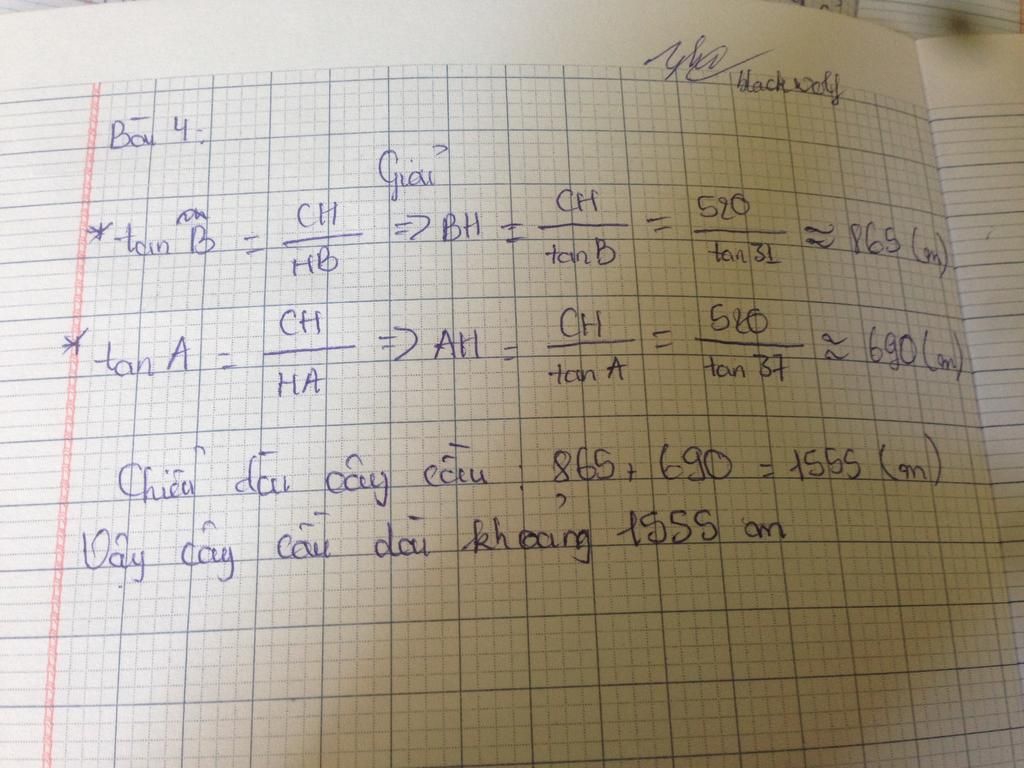 black wolf
Bài 4:
Giải
* tan B = CH/HB => BH = CH/tan B = 520/tan 31 ≈ 865 (m)
* tan A = CH/HA => AH = CH/tan A = 520/tan 37 ≈ 690 (m)
Chiều dài cây cầu : 865 + 690 = 1555 (m)
Vậy cây cầu dài khoảng 1555 m